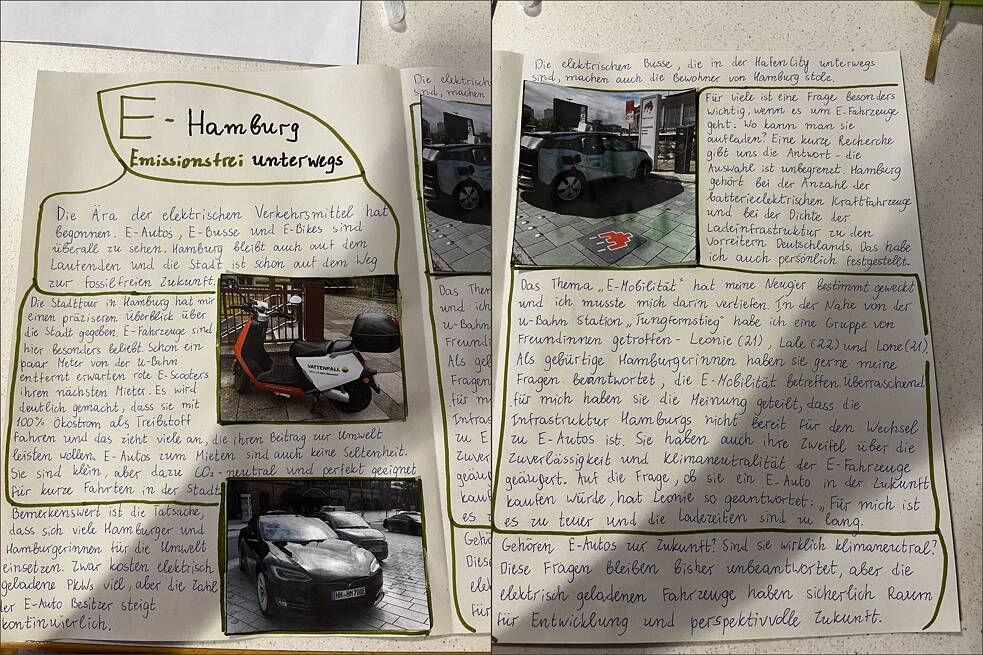 E - Hamburg
Emissionsfrei unterwegs
Die Ära der elektrischen Verkehrsmittel hat
begonnen. E-Autos, E-Busse und E-Bikes sind
überall zu sehen. Hamburg bleibt auch auf dem
Laufenden und die Stadt ist schon auf dem Weg
zur fossilfreien Zukunft.
Die Stadttour in Hamburg hat mir
einen präziseren Überblick über
die Stadt gegeben. E-Fahrzeuge sind
hier besonders beliebt. Schon ein
paar Meter von der U-Bahn
entfernt erwarten rote E-Scooters
ihren nächsten Mieter. Es wird
deutlich gemacht, dass sie mit
100% Ökostrom als Treibstoff
fahren und das zieht viele an, die ihren Beitrag zur Umwelt
leisten wollen. E-Autos zum Mieten sind auch keine Seltenheit.
Sie sind klein, aber dazu CO2-neutral und perfekt geeignet
für kurze Fahrten in der Stadt.
VATTENFALL
Bemerkenswert ist die Tatsache,
dass sich viele Hamburger und
Hamburgerinnen für die Umwelt
einsetzen. Zwar kosten elektrisch
geladene PKWs viel, aber die Zahl
der E-Auto Besitzer steigt
kontinuierlich.
Die elektrisch
sind, machen
Das Them
und ich
U-Bahn
Freundin
Als geb
Fragen
für m
Infras
zu E
Zuver
geäuf
kauf
es z
Gehö
Diese
elek
für
Die elektrischen Busse, die in der HafenCity unterwegs
sind, machen auch die Bewohner von Hamburg stolz.
Für viele ist eine Frage besonders
wichtig, wenn es um E-Fahrzeuge
geht: Wo kann man sie
aufladen? Eine kurze Recherche
gibt uns die Antwort - die
Auswahl ist unbegrenzt. Hamburg
gehört bei der Anzahl der
batterieelektrischen Kraftfahrzeuge
und bei der Dichte der
Ladeinfrastruktur zu den
Vorreitern Deutschlands. Das habe
ich auch persönlich festgestellt.
Das Thema „E-Mobilität" hat meine Neugier bestimmt geweckt
und ich musste mich darin vertiefen. In der Nähe von der
U-Bahn Station „Jungfernstieg" habe ich eine Gruppe von
Freundinnen getroffen - Leonie (21), Lale (22) und Lone (21).
Als gebürtige Hamburgerinnen haben sie gerne meine
Fragen beantwortet, die E-Mobilität betreffen. Überraschend
für mich haben sie die Meinung geteilt, dass die
Infrastruktur Hamburgs nicht bereit für den Wechsel
zu E-Autos ist. Sie haben auch ihre Zweifel über die
Zuverlässigkeit und Klimaneutralität der E-Fahrzeuge
geäußert. Auf die Frage, ob sie ein E-Auto in der Zukunft
kaufen würde, hat Leonie so geantwortet: „Für mich ist
es zu teuer und die Ladezeiten sind zu lang.
Gehören E-Autos zur Zukunft? Sind sie wirklich klimaneutral?
Diese Fragen bleiben bisher unbeantwortet, aber die
elektrisch geladenen Fahrzeuge haben sicherlich Raum
für Entwicklung und perspektivvolle Zukunft.